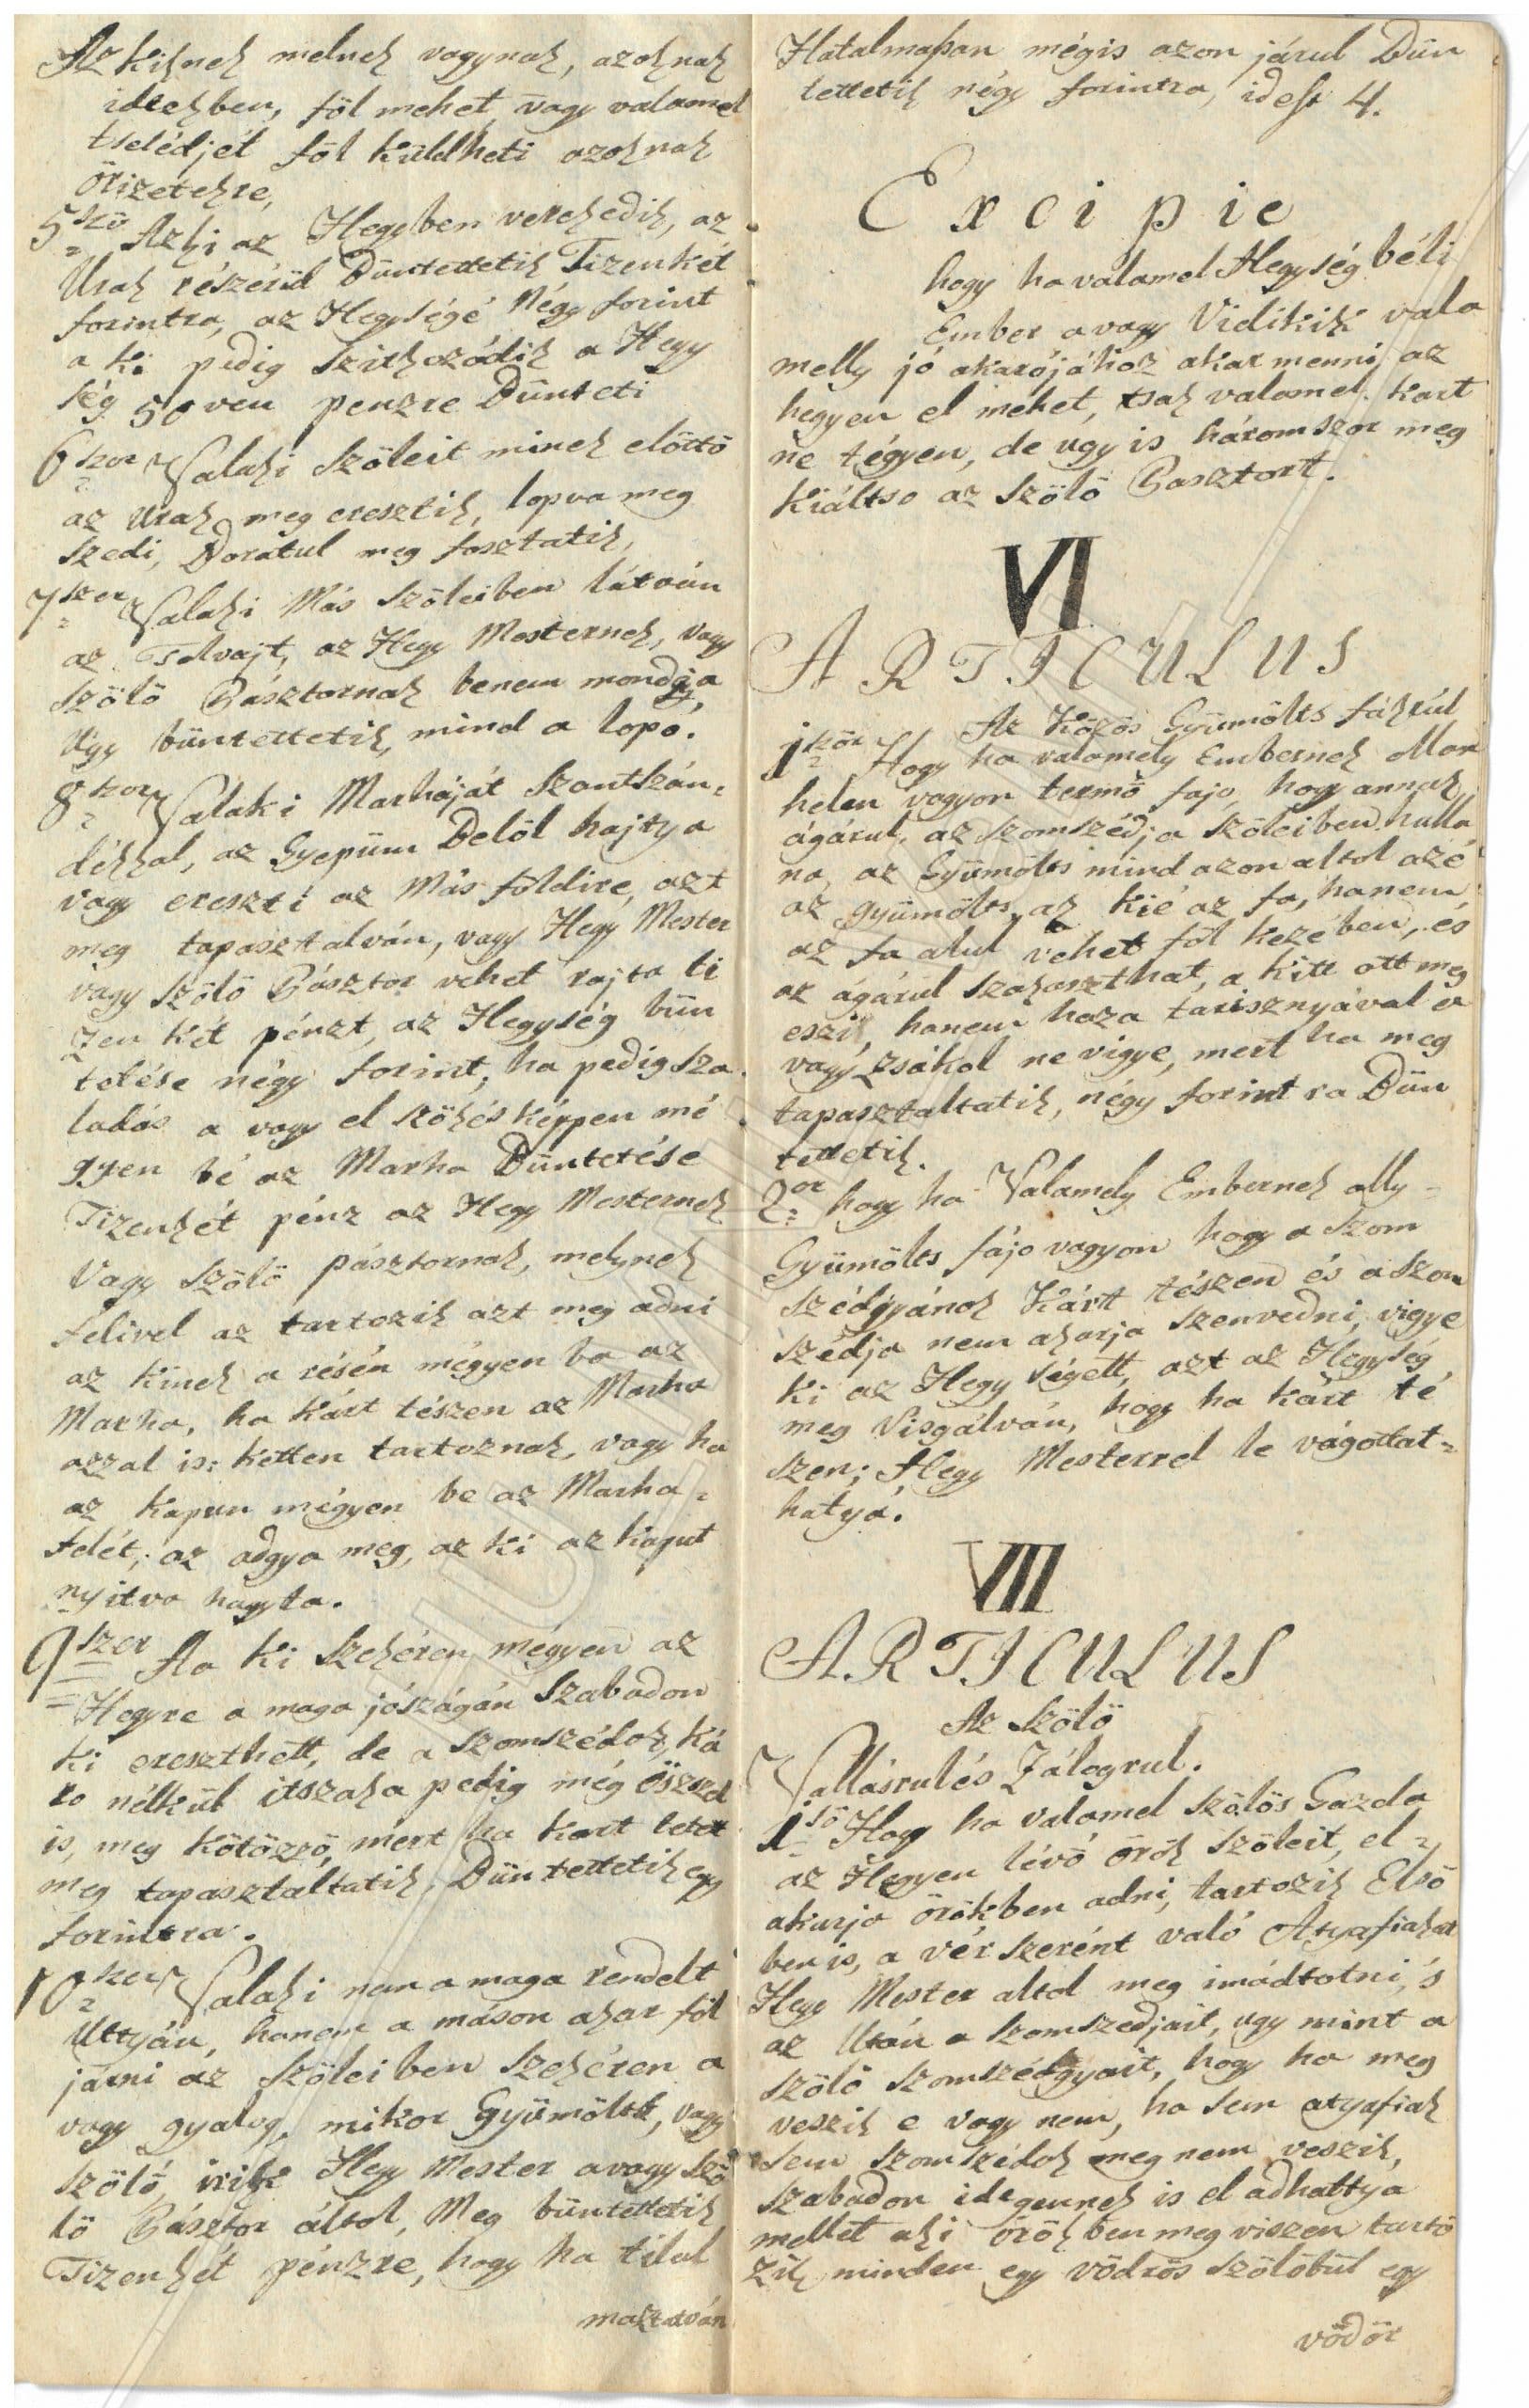 Az kiknek melnek vagynak, azoknak
idtekben, föl mehet, vagy valamel
tselédjét föl küldheti azoknak
Örizetekre,
5ször Azki az Hegyben verekedik, az
Urak részérül Büntettetik Tizenkét
forintra, az Hegységé Négy forint
a ki pedig Szitkozódik a Hegy
ség 50ven penzre Bünteti
6szor Valaki Szöleit minek elötte
az Urak meg eresztik, lopva meg
szedi, Borátul meg fosztatik,
7szer Valaki Más Szöleiben látván
az Tolvajt, az Hegy Mesternek, vagy
Szölö Pásztornak benem mondgya,
Ugy büntettetik, mind a lopó.
8szor Valaki Marháját Szántszán-
dékkal, az Gyepüm Belöl hajtya
vagy ereszti az Más földire, azt
meg tapasztalván, vagy Hegy Mester
vagy Szölö Pásztor vehet rajta ti
zen két pénzt, az Hegység bün
tetése négy forint, ha pedig sza
ladás a vagy el szökés képpen mé
gyen bé az Marha Büntetése
Tizenkét pénz az Hegy Mesternek
Vagy Szölö pásztornak, melynek
felivel az tartozik azt meg adni
az kinek a résén mégyen ba az
Marha, ha Kárt tészen az Marha
azzal is: Ketten tartoznak, vagy ha
az kapun mégyen be az Marha-
felét, az adgya meg, az ki az kaput
nyitva hagyta.
9szer Aa ki Szekéren mégyen az
Hegyre a maga jószágán Szabadon
ki ereszthett, de a szomszédok, ká
ra nélkül itszaka pedig még Öszszel
is, meg kötözzö, mert ha kart tett
meg tapasztaltatik, Büntettetik egy
forintra.
10szer Valaki nem a maga rendelt
Uttyán, hanem a máson akar föl
járni az Szöleiben Szekéren a
vagy gyalog, mikor Gyümölts, vagy
Szölö irik Hegy Mester avagy Szö
lö Pásztor által, Meg büntettetik
Tizenkét pénzre, hogy ha tilal
maztatván
Hatalmaſsan mégis azon járul Bün
tettetik négy forintra, ideſt 4.
Excipie
hogy ha valamel Hegység béli
Ember avagy Vidikik vala
melly jó akarójához akar menni az
hegyen el mehet, tsak valamel kart
ne tégyen, de ugy is háromszor meg
kiáltsa az Szölö Pasztort.
VI
ARTICULUS
Az Közös Gyümölts fákrúl
1ször Hogy ha valamely Embernek Mar
helen vagyon termö faja, hogy annak
ágárul, az szomszédja szöleiben hulla
na, az Gyümölts mind azon altal azé
az gyümölts, az kié az fa, hanem
az fa alul vehet föl kezében, és
az ágárul szakaszthat, a kitt ott meg
eszik, hanem haza tarisznyával a
vagy zsákal ne vigye, mert ha meg
tapasztaltatik, négy forintra Bün
tettetik.
2or hogy ha Valamely Embernek olly-
Gyümölts fája vagyon hogy a szom
szédgyának Kárt tészen és a szom
szédja nem akarja szenvedni, vigye
ki az Hegységett, azt az Hegység
meg Visgálván, hogy ha kárt té
szen; Hegy Mesterrel le vágattat-
hatya.
VII
ARTICULUS
Az Szölö
Vallásrul és Zálogrul.
1sö Hogy ha valamel szölös Gazda
az Hegyen lévö örök szöleit, el-
akarja örökben adni, tartozik Elsö
ben is, a vér szerént való Atyafiakat
Hegy Mester altal meg imádtatni, 's
az Után a szomszedjait, ugy mint a
szölö szomszédgyait, hogy ha meg
veszik e vagy nem, ha sem atyafiak
sem szomszédok meg nem veszik,
szabadon idegennek is el adhattya
mellet aki örökben meg viszen tarto
zik minden egy vödrös szölöbül egy
vödör